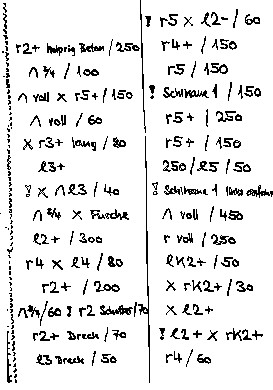 r2+ holprig Beton / 250
∩ 3/4 / 100
∩ voll × r5+ / 150
∩ voll / 60
× r3+ lang / 80
l3+
! × ∩ l3 / 40
∩ 3/4 × Furche
l2+ / 300
r4 × l4 / 80
r2+ / 200
∩ 3/4 / 60 ! r2 Schotter / 70
r2+ Dreck / 70
l3 Dreck / 50
! r5 × l2- / 60
r4+ / 150
r5 / 150
! Schikane 1 / 150
r5+ / 250
r5+ / 150
250 / l5 / 50
! Schikane 1 links einfahren
∩ voll / 450
r voll / 250
lK2+ / 50
× rK2+ / 30
× l2+
! l2+ × rK2+
r4 / 60